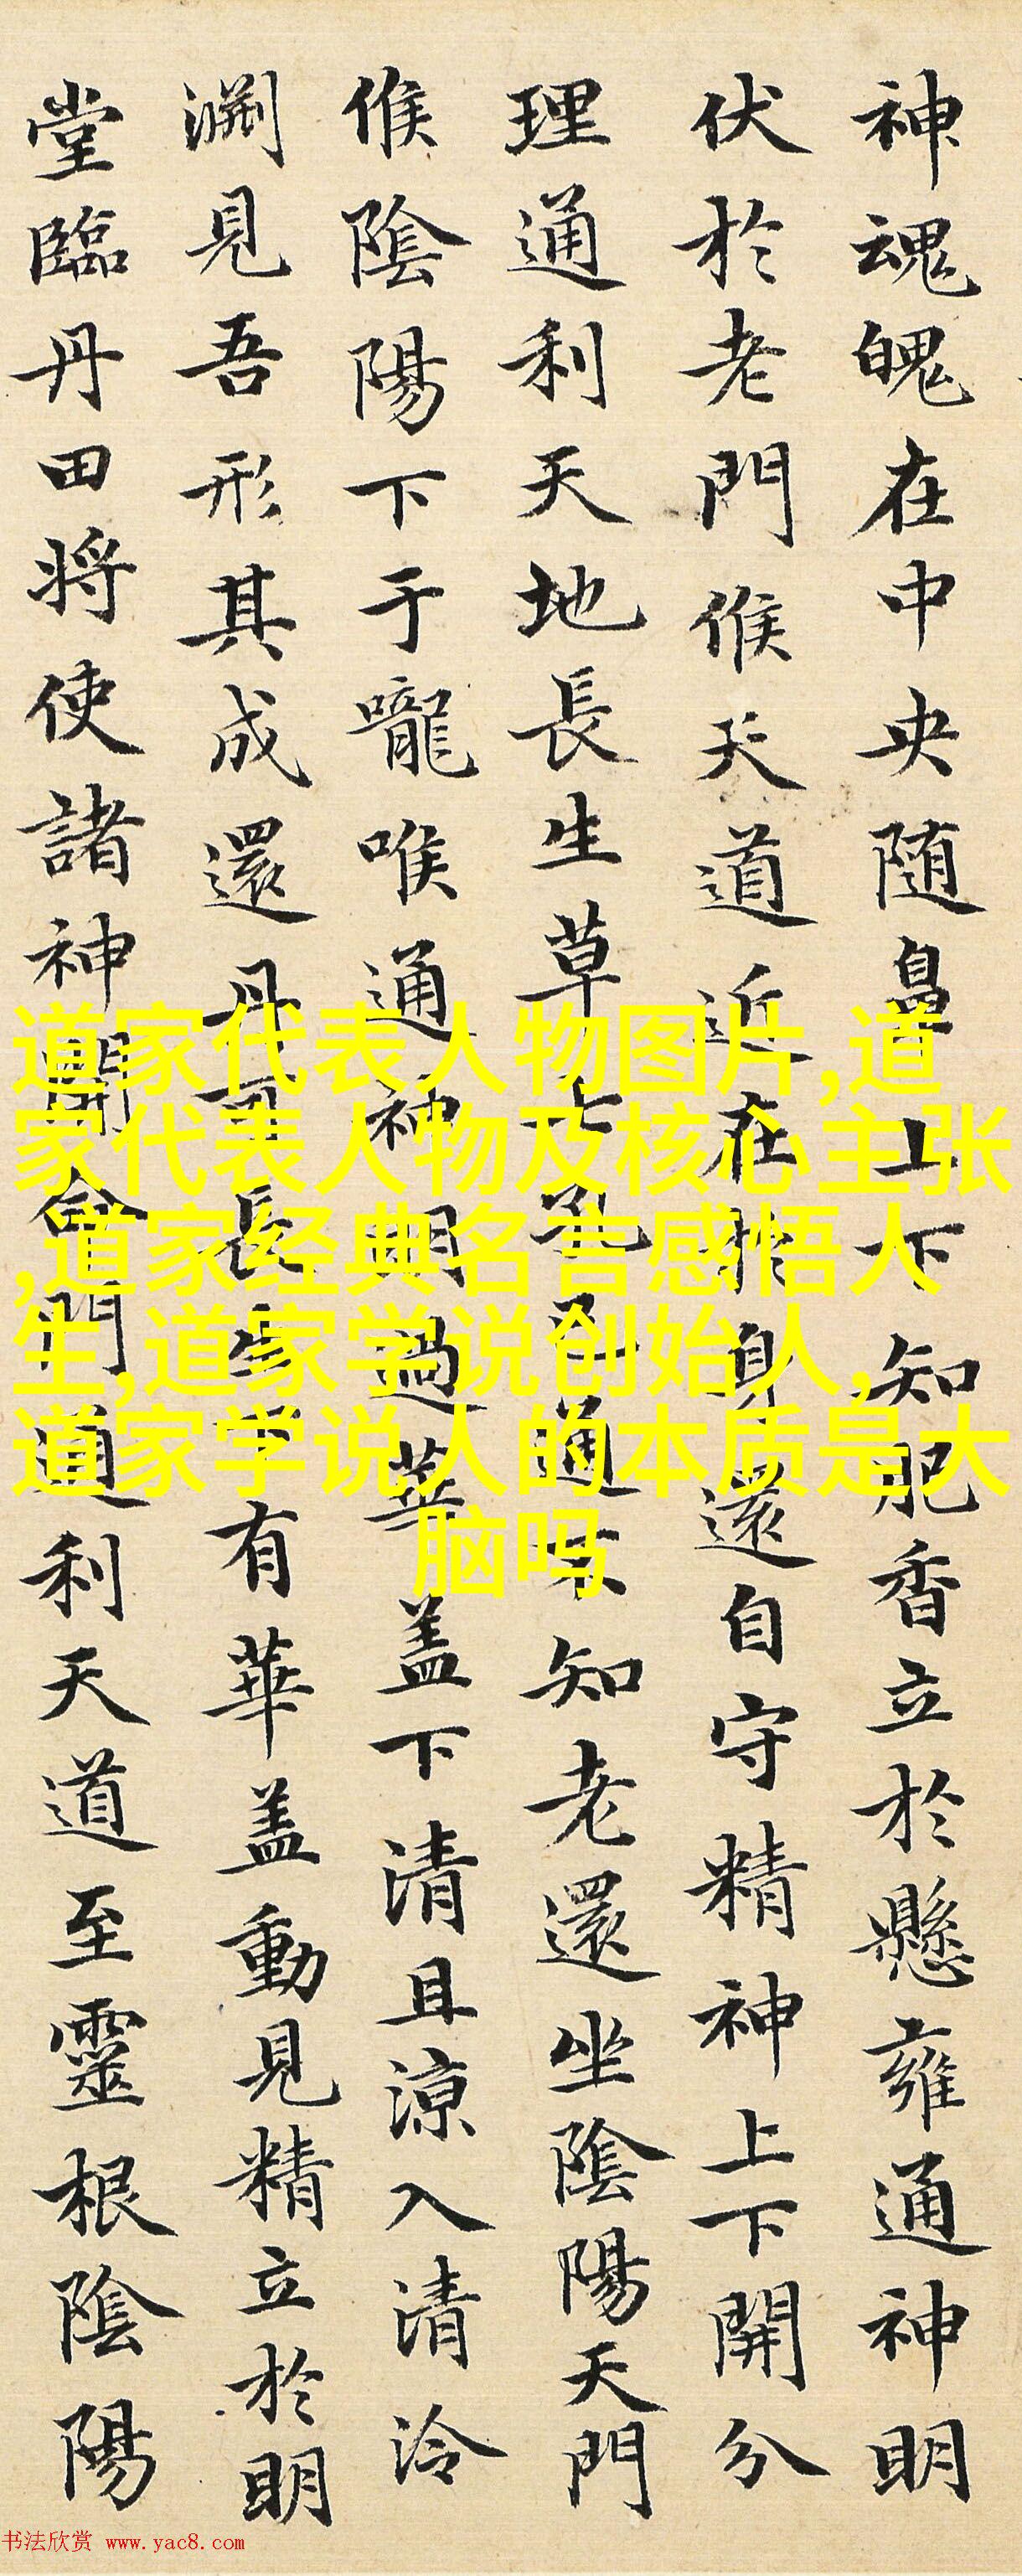 神魂魄在中央随鼻上下知肥香立於懸雍通神明
伏於老門候天道近在於身還自守精神上下開分
理通利天地長生草七孔已通不知老還坐陰陽天門
候陰陽下于嚨喉通神明過華盖下清且涼入清泠
淵見吾形其成還丹可長生有華盖動見精立於明
堂臨丹田將使諸神開命門通利天道至靈根陰陽
道家代表人物图片,道
家代表人物及核心主张
,道家经典名言感悟人
生,道家学说创始人,
道家学说人的本质是大
脑吗
书法欣赏 www.yac8.com